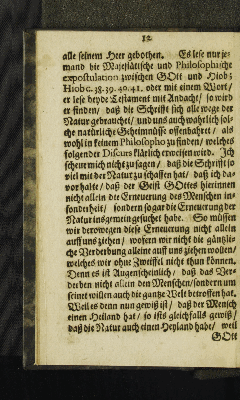 12
alle seinem Heer gebothen. Es lese nur je-
mand die Majestätische und Philosophische
expostulation zwischen GOtt und Hiob:
Hiob c. 38. 39. 40. 41. oder mit einem Wort/
er lese beyde Testament mit Andacht/ so wird
er finden/ daß die Schrifft sich alle wege der
Natur gebrauchet/ und uns auch wahrlich sol-
che natürliche Geheimnüsse offenbahret/ als
wohl in keinem Philosopho zu finden/ welches
folgender Discurs klärlich erweisen wird. Ich
scheue mich nicht zu sagen/ daß die Schrifft so
viel mit der Natur zu schaffen hat/ daß ich da-
vor halte/ daß der Geist GOttes hierinnen
nicht allein die Erneuerung des Menschen in-
sonderheit/ sondern sogar die Erneuerung der
Natur ins gemein gesuchet habe. So müssen
wir derowegen diese Erneuerung nicht allein
auff uns ziehen/ wofern wir nicht die gäntzli-
che Verderbung alleine auff uns ziehen wollen/
welches wir ohne Zweiffel nicht thun können.
Denn es ist Augenscheinlich/ daß das Ver-
derben nicht allein den Menschen/ sondern um
seinet willen auch die gantze Welt betroffen hat.
Weil es denn nun gewiß ist/ daß der Mensch
einen Heiland hat/ so ists gleichfalls gewiß/
daß die Natur auch einen Heyland habe/ weil
GOtt